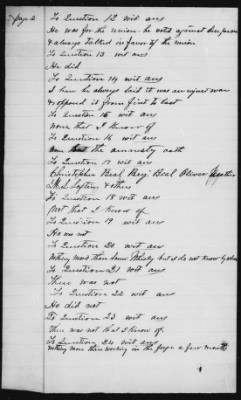 page 2
To Question 12 wit ans
He was for the union he voted against
& always talked in favor of the union
To Question 13 wit ans
He did
To Question 14 wit ans
I know he always said it was an unjust war
& opposed it from first to last
To Question 15 wit ans
none that I know of
To Question 16 wit ans
the amnesty oath
To Question 17 wit ans
Christopher Beal Benj Beal Oliver
& others
To Question 18 wit ans
Not that I know of
To Question 19 wit ans
He was not
To Question 20 wit ans
Nothing more than but I do not know
To Question 21 wit ans
There was not
To Question 22 wit ans
He did not
To Question 23 wit ans
There was not that I know of
To Question 24 wit ans
Nothing more than working in the forge a few months